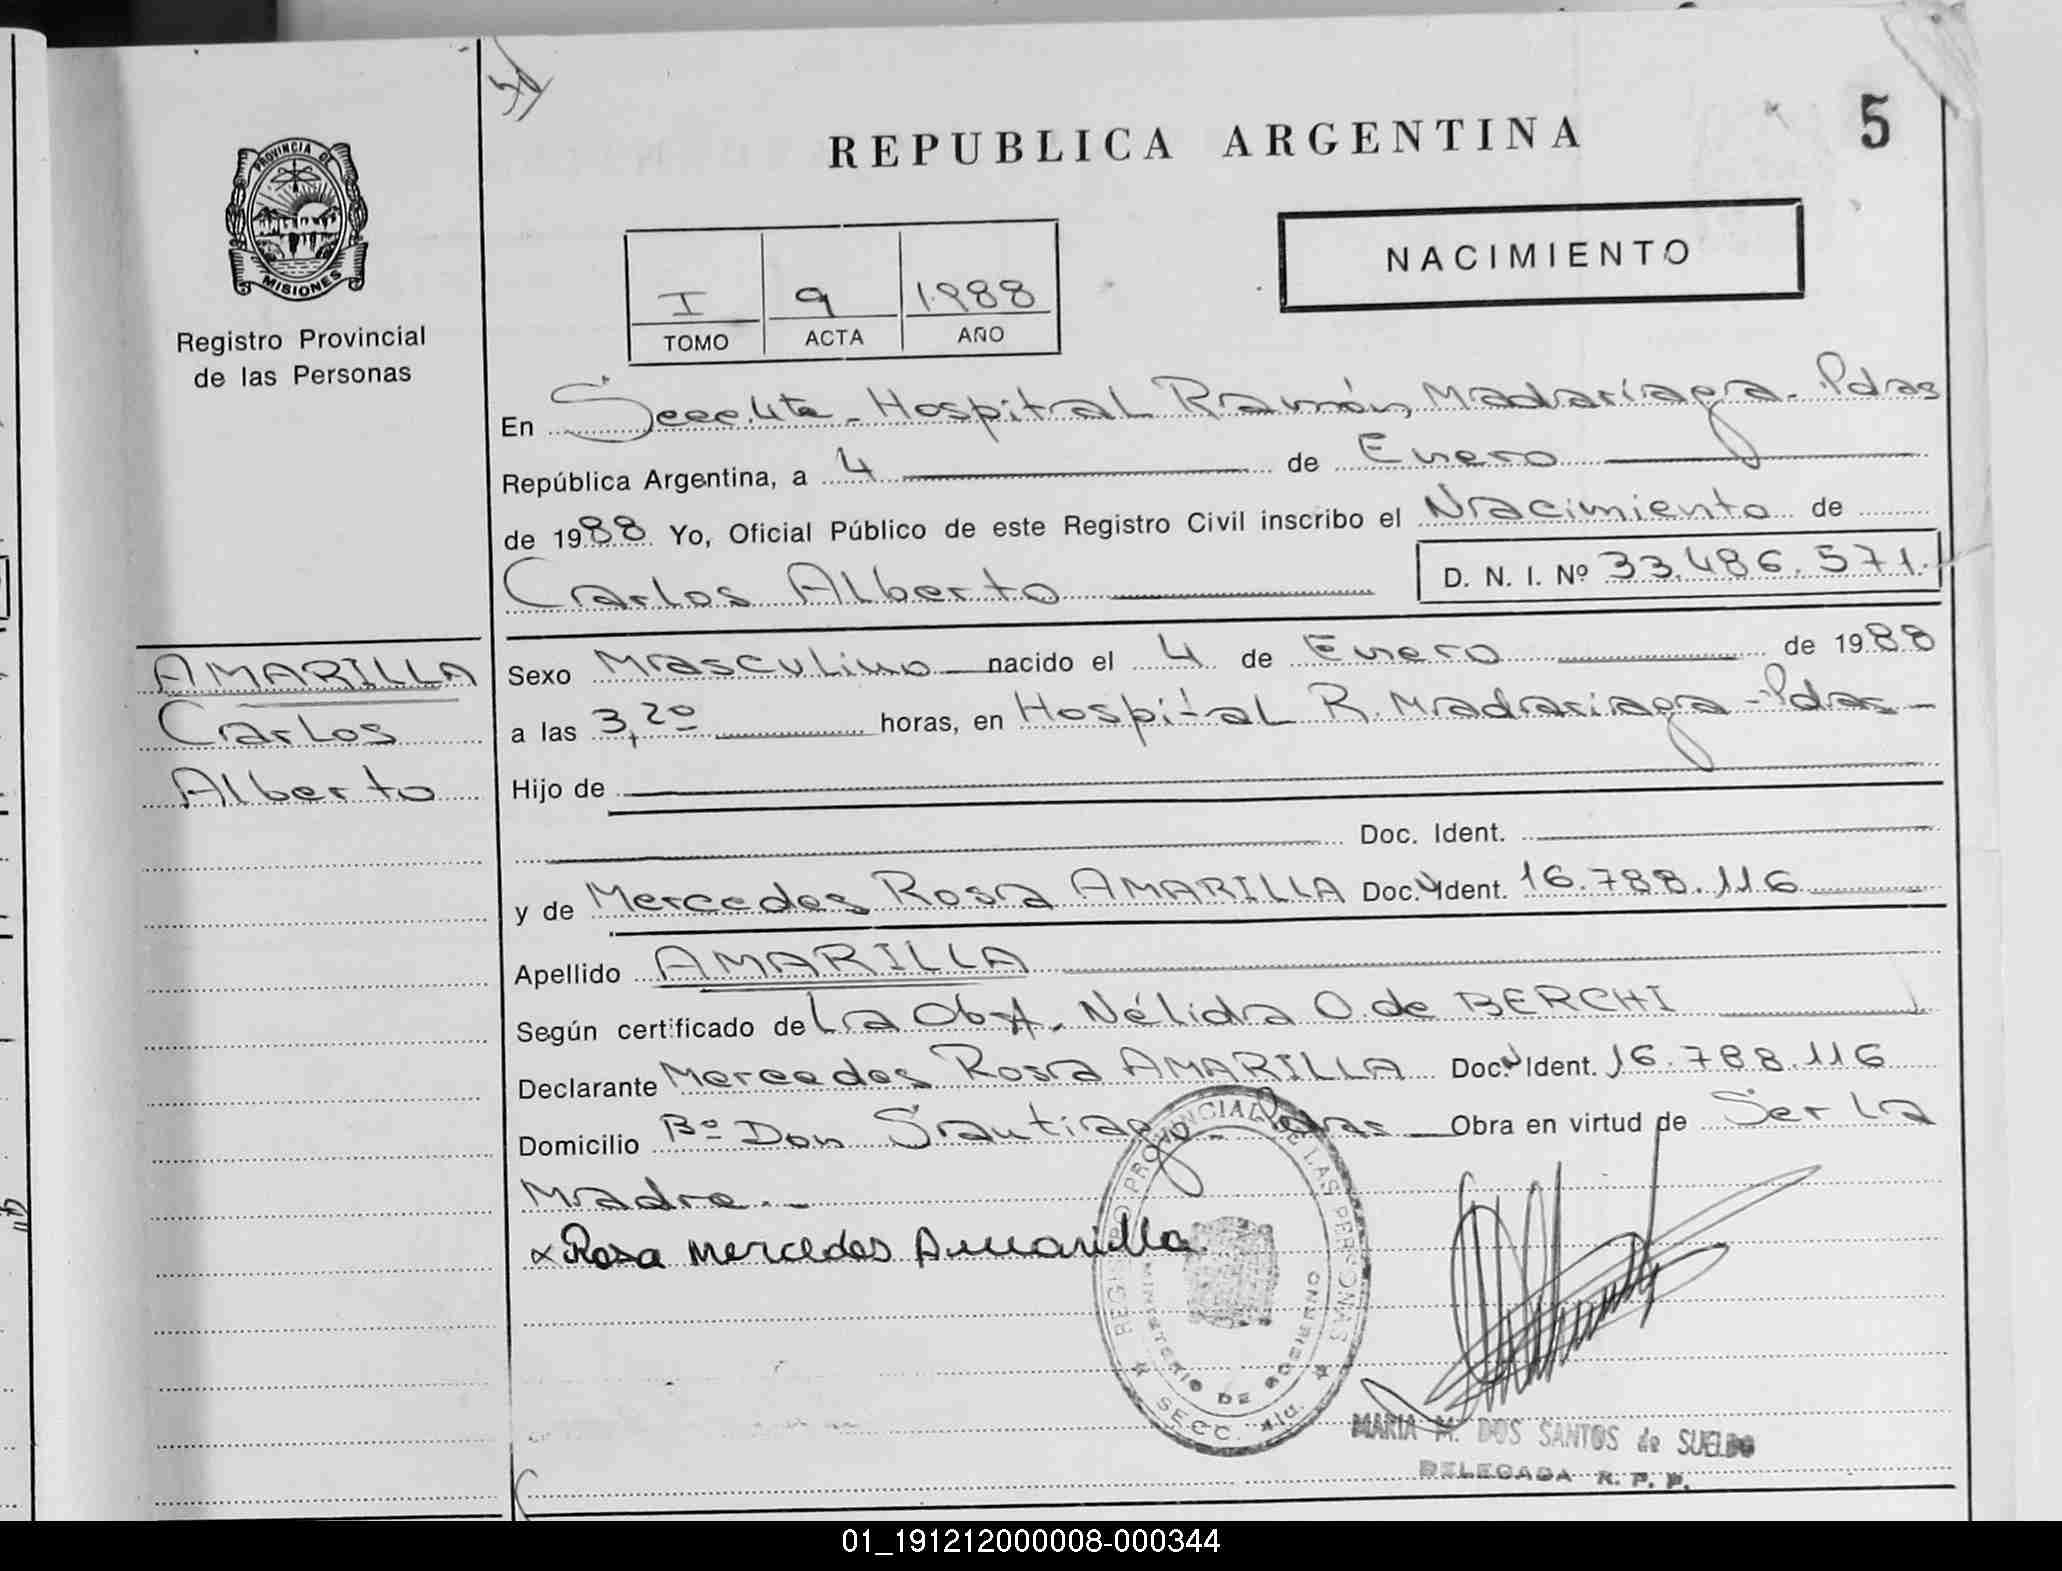 PROVINCIA DE
MISIONES
Registro Provincial
de las Personas
REPUBLICA ARGENTINA
5
NACIMIENTO
I 9 1988
TOMO ACTA AÑO
En Secc. 4ta - Hospital Ramón Madariaga - Pdas
República Argentina, a 4 de Enero
de 1988 Yo, Oficial Público de este Registro Civil inscribo el Nacimiento de
Carlos Alberto D. N. I. Nº 33.486.571.
AMARILLA
Carlos
Alberto
Sexo Masculino nacido el 4 de Enero de 1988
a las 3,20 horas, en Hospital R. Madariaga - Pdas -
Hijo de
Doc. Ident.
y de Mercedes Rosa AMARILLA Doc. Ident. 16.788.116
Apellido AMARILLA
Según certificado de La Obst. Nélida O. de BERCHI
Declarante Mercedes Rosa AMARILLA Doc. Ident. 16.788.116
Domicilio Bº Don Santiago - Pdas Obra en virtud de Ser La
Madre. -
x Rosa Mercedes Amarilla
REGISTRO PROVINCIAL DE LAS PERSONAS
MINISTERIO DE GOBIERNO
SECC. 4ta.
MARIA M. DOS SANTOS de SUELDO
DELEGADA R. P. P.
01_191212000008-000344